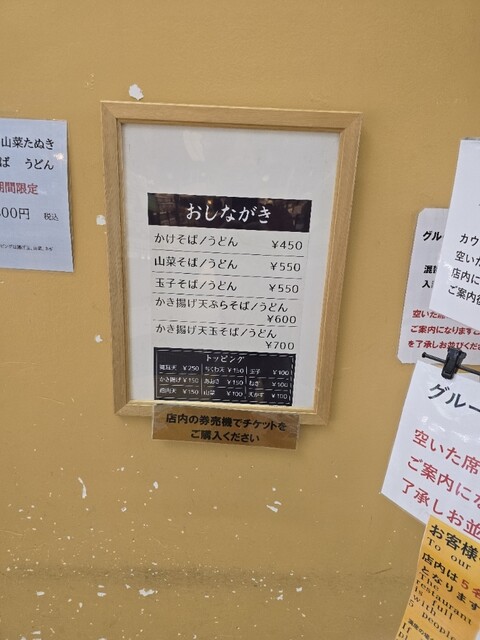 山菜たぬき
ば うどん
期間限定
00円 税込
おしながき
かけそば/うどん ¥450
山菜そば/うどん ¥550
玉子そば/うどん ¥550
かき揚げ天ぷらそば/うどん
¥600
かき揚げ天玉そば/うどん
¥700
トッピング
¥250 ちくわ天 ¥150 玉子 ¥100
かき揚げ ¥150 ¥150 ねぎ ¥100
¥150 山菜 ¥100 天かす ¥100
店内の券売機でチケットを
ご購入ください
グル
混雑
入
空いた席
ご案内になりますこ
を了承しお並びくださ
カウ
空いた
店内に
ご案内
グルー
空いた席
ご案内にな
了承しお並
お客様
To our
店内は5名
となります
The
restaurant
is full
with
5 people